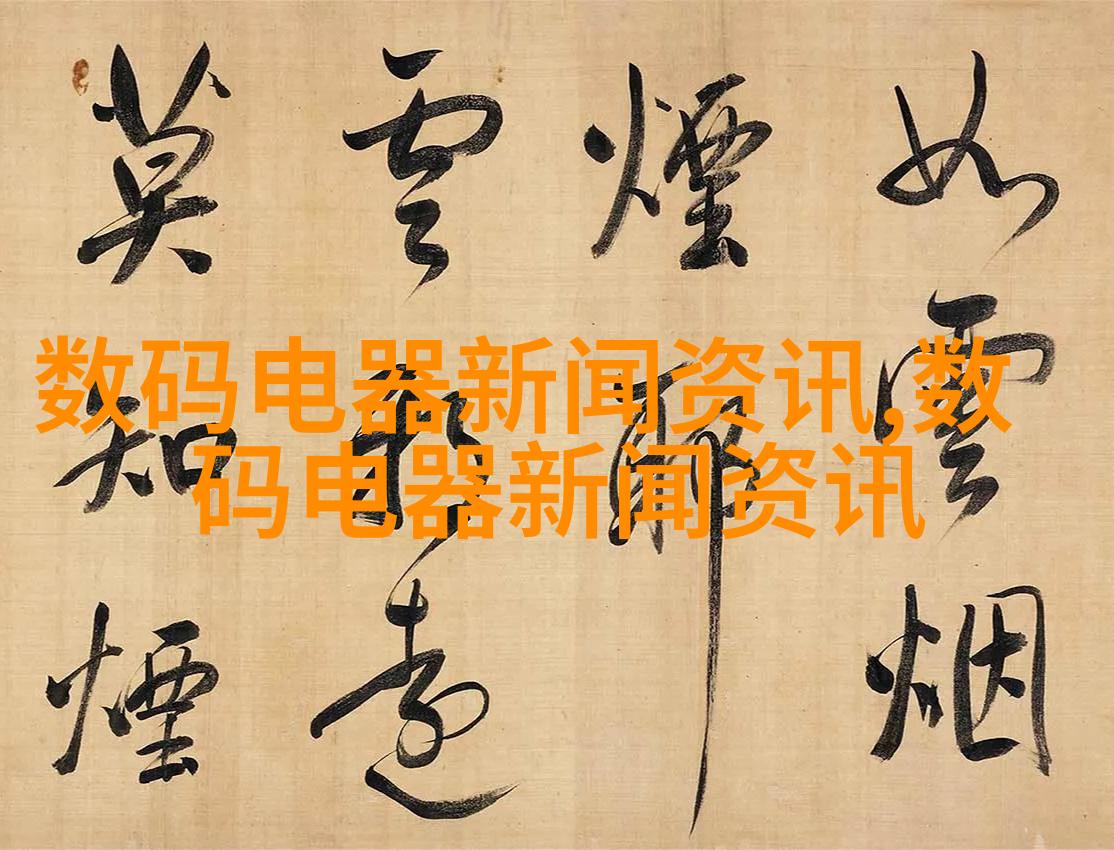 数码电器新闻资讯,数
码电器新闻资讯
如雲烟
煙
雲
莫知煙